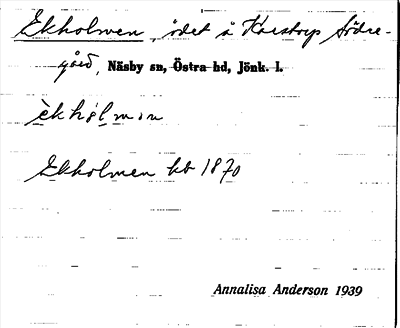 Ekholmen, ödet å Karstorp Södre-
gård, Näsby sn, Östra hd, Jönk. l.
èkhòlmən
Ekholmen kb 1870
Annalisa Anderson 1939